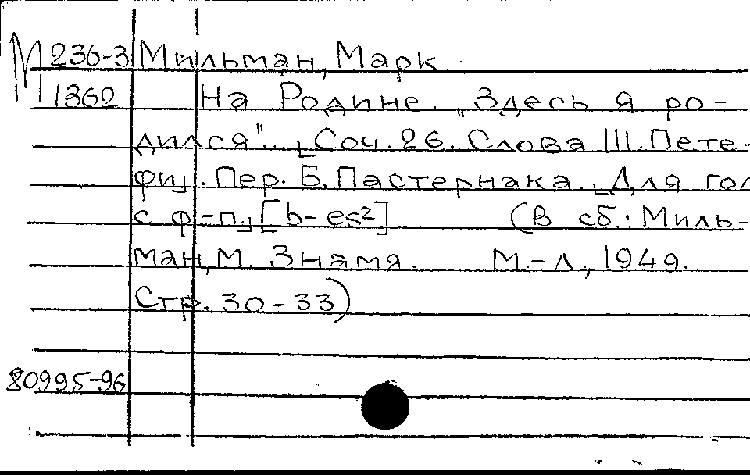 М 236-3 Мильман, Марк
1362 На Родине. „Здесь я ро-
дился". [Соч. 26. Слова Ш. Пете-
фи]. Пер. Б. Пастернака. [Для гол.
с ф-п.] [b-es²] (В сб.: Миль-
ман, М. Знамя. М.-Л., 1949.
Стр. 30-33)
80995-96